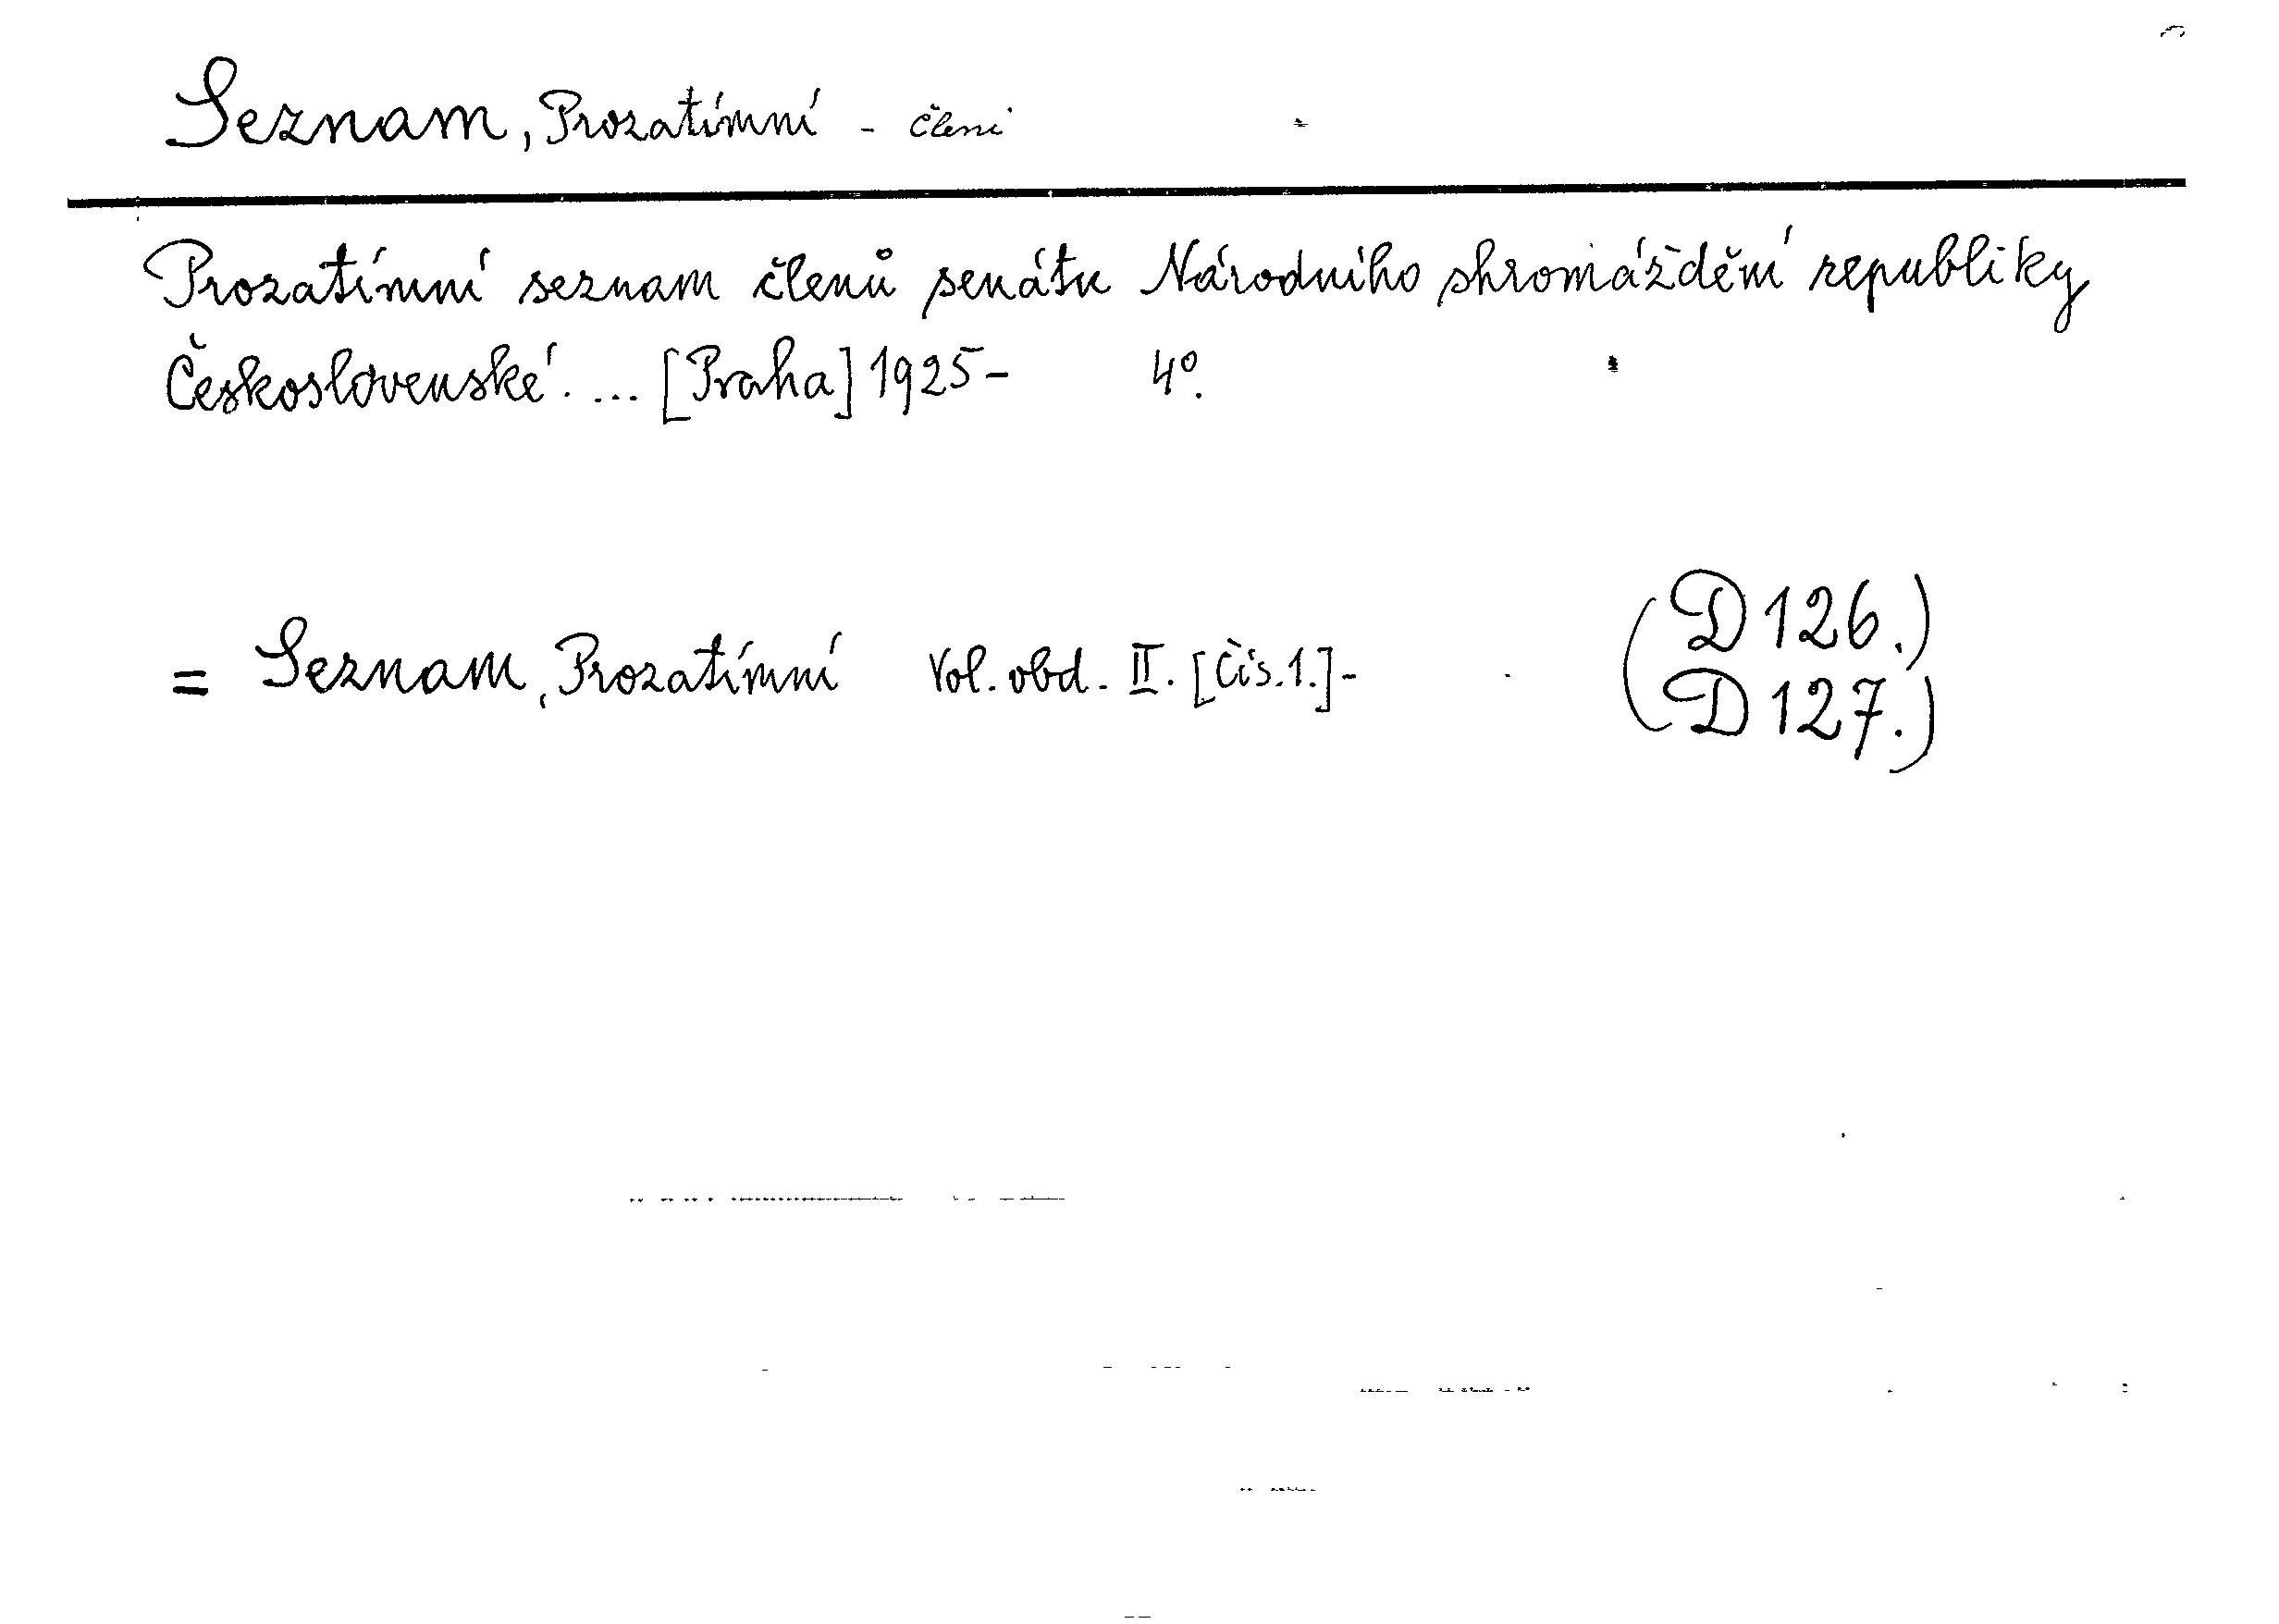 Seznam, Prozatímní - Členi
Prozatímní seznam členů senátu Národního shromáždění republiky
Československé. ... [Praha] 1925- 4º.
(D 126.)
= Seznam, Prozatímní Vol. obd. II. [Čís. 1.]-
(D 127.)